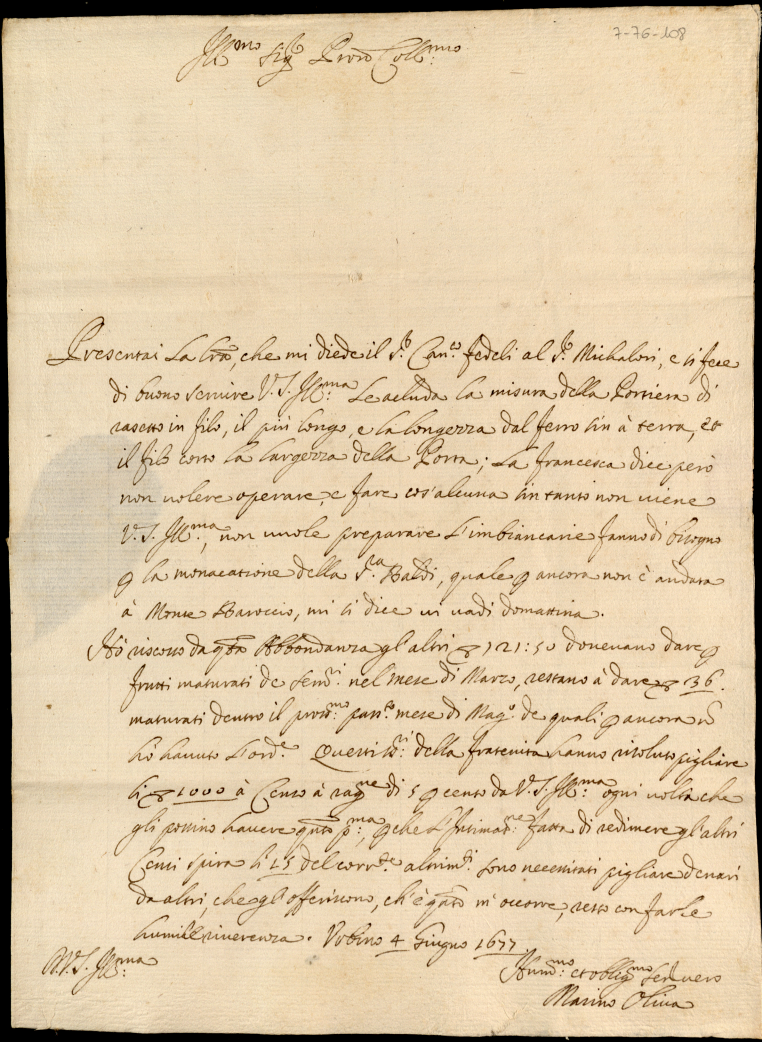 7-76-108
Ill:mo Sig.r Pron Coll:mo
Presentai La lra, che mi diede il S.r Can.co Fedeli al S.r Michalori, e si fece
di buono servire V.S. Ill:ma Le acluda la misura della Portiera di
rasetto in filo, il più longo, e la longezza dal ferro sin à terra, et
il filo corto la largezza della Porta; La Francesca dice però
non volere operare, e fare cos'alcuna sin tanto non viene
V.S. Ill:ma, non vuole preparare l'imbiancarie fanno di bisogno
p la monacatione della S.ra Baldi, quale p ancora non è andata
à Monte Baroccio, mi si dice vi vadi domattina.
Hò riscosso da qta Abbondanza gl'altri 121:50 dovevano dare p
frutti maturati de sem:ri nel mese di Marzo, restano à dare 36.
maturati dentro il pross:mo pass:to mese di Mag:o de quali p ancora nō
hò havuto l'ord:e Questi SS:ri della fraternita hanno risoluto pigliare
li 1000 à Censo à rag:ne di 5 p cento da V.S. Ill:ma ogni volta che
gli possino havere qnto p:ma, p che l'Intimat:ne fatta di redimere gl'altri
Censi spira li 15 del corr:te altrim:ti sono necessitati pigliare denari
da altri, che gl'offeriscono, ch'è qnto m'occorre, resto con farle
humile riverenza. Urbino 4 Giugno 1677.
D.V.S. Ill:ma
Hum:mo et obblig:mo Ser vero
Marino Oliva